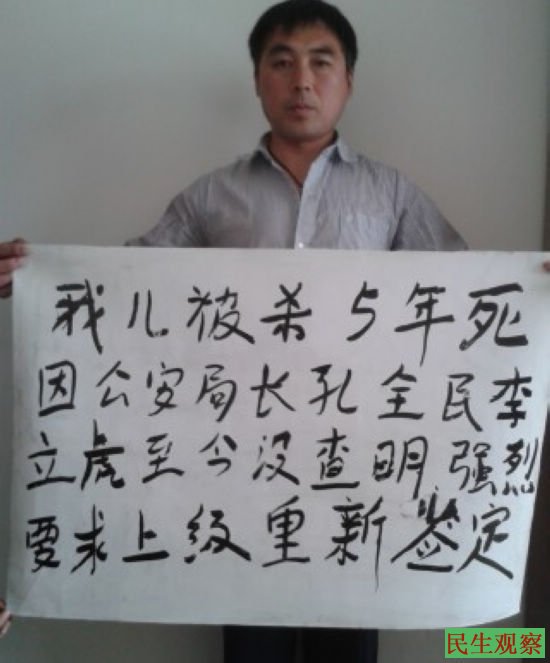 我儿被杀5年死
因公安局长孔全民李
立虎至今没查明强烈
要求上级重新鉴定
民生观察